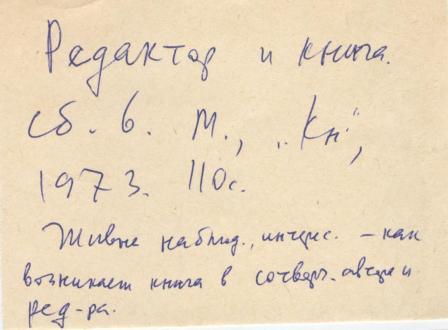 Редактор и книга.
сб. 6. М., „Кн“,
1973. 110с.
Живые наблюд., интерес. – как
возникает книга в сотвор. автора и
ред-ра.